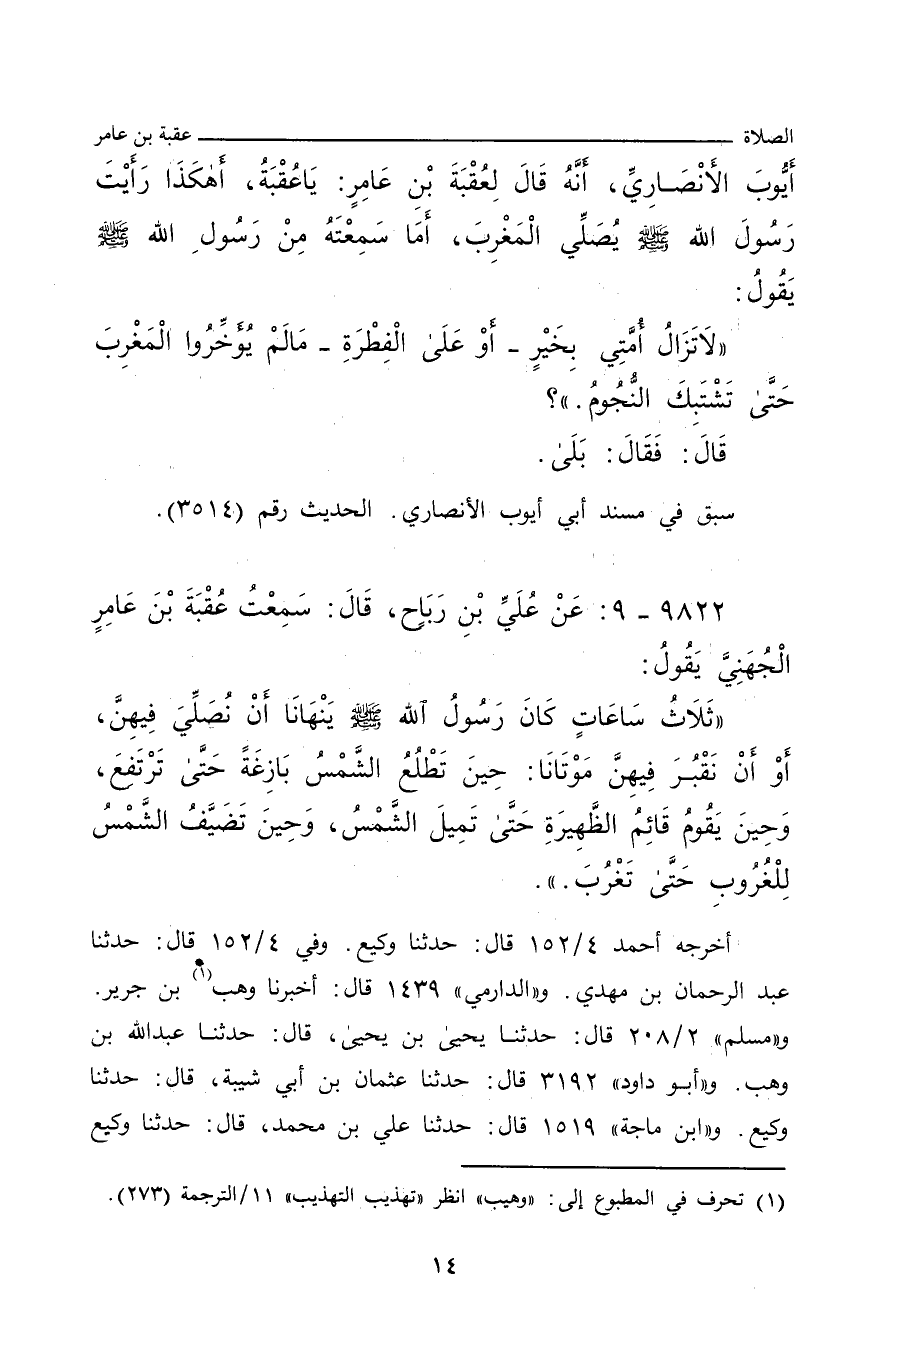 الصلاة عقبة بن عامر
أَيُّوبَ الأَنْصَارِيِّ، أَنَّهُ قَالَ لِعُقْبَةَ بْنِ عَامِرٍ: يَاعُقْبَةُ، أَهٰكَذَا رَأَيْتَ
رَسُولَ الله ﷺ يُصَلِّي الْمَغْرِبَ، أَمَا سَمِعْتَهُ مِنْ رَسُولِ الله ﷺ
يَقُولُ:
«لَاتَزَالُ أُمَّتِي بِخَيْرٍ - أَوْ عَلَىٰ الْفِطْرَةِ - مَالَمْ يُؤَخِّرُوا الْمَغْرِبَ
حَتَّىٰ تَشْتَبِكَ النُّجُومُ.»؟
قَالَ: فَقَالَ: بَلَىٰ.
سبق في مسند أبي أيوب الأنصاري. الحديث رقم (٣٥١٤).
٩٨٢٢ - ٩: عَنْ عُلَيِّ بْنِ رَبَاحٍ، قَالَ: سَمِعْتُ عُقْبَةَ بْنَ عَامِرٍ
الْجُهَنِيَّ يَقُولُ:
«ثَلَاثُ سَاعَاتٍ كَانَ رَسُولُ ٱلله ﷺ يَنْهَانَا أَنْ نُصَلِّيَ فِيهِنَّ،
أَوْ أَنْ نَقْبُرَ فِيهِنَّ مَوْتَانَا: حِينَ تَطْلُعُ الشَّمْسُ بَازِغَةً حَتَّىٰ تَرْتَفِعَ،
وَحِينَ يَقُومُ قَائِمُ الظَّهِيرَةِ حَتَّىٰ تَمِيلَ الشَّمْسُ، وَحِينَ تَضَيَّفُ الشَّمْسُ
لِلْغُرُوبِ حَتَّىٰ تَغْرُبَ.».
أخرجه أحمد ١٥٢/٤ قال: حدثنا وكيع. وفي ١٥٢/٤ قال: حدثنا
عبد الرحمان بن مهدي. و«الدارمي» ١٤٣٩ قال: أخبرنا وهب(١) بن جرير.
و«مسلم» ٢٠٨/٢ قال: حدثنا يحيىٰ بن يحيىٰ، قال: حدثنا عبدالله بن
وهب. و«أبو داود» ٣١٩٢ قال: حدثنا عثمان بن أبي شيبة، قال: حدثنا
وكيع. و«ابن ماجة» ١٥١٩ قال: حدثنا علي بن محمد، قال: حدثنا وكيع
(١) تحرف في المطبوع إلى: «وهيب» انظر «تهذيب التهذيب» ١١/الترجمة (٢٧٣).
١٤